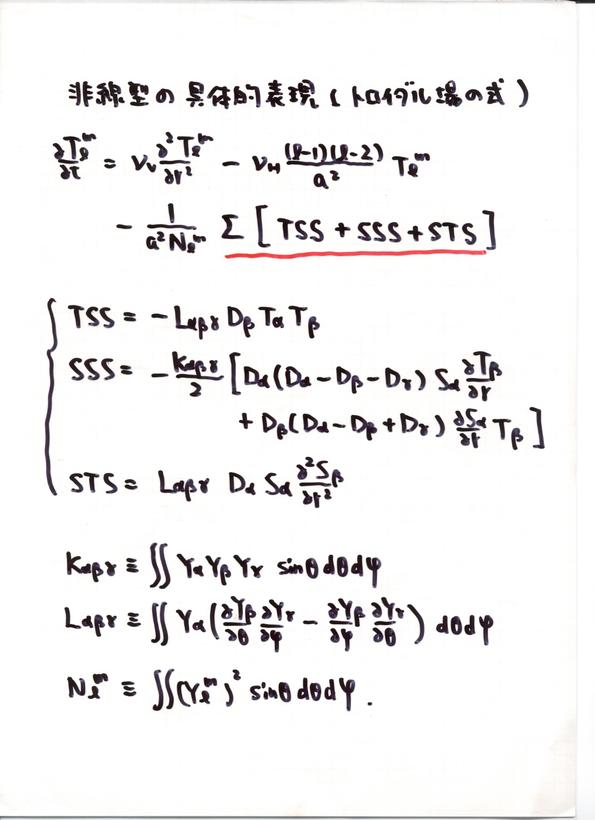 非線型の具体的表現(トロイダル場の式)
∂Tₗᵐ/∂t = νᵥ ∂²Tₗᵐ/∂r² − ν_H (ℓ-1)(ℓ-2)/a² Tₗᵐ
− 1/(a²Nₗᵐ) Σ [TSS + SSS + STS]
TSS = − Lαβγ Dβ Tα Tβ
SSS = − Kαβγ/2 [Dα(Dα − Dβ − Dγ) Sα ∂Tβ/∂r
+ Dβ(Dα − Dβ + Dγ) ∂Sα/∂r Tβ]
STS = Lαβγ Dα Sα ∂²Sβ/∂r²
Kαβγ ≡ ∬ Yα Yβ Yγ sinθ dθ dφ
Lαβγ ≡ ∬ Yα (∂Yβ/∂θ ∂Yγ/∂φ − ∂Yβ/∂φ ∂Yγ/∂θ) dθ dφ
Nₗᵐ ≡ ∬ (Yₗᵐ)² sinθ dθ dφ.